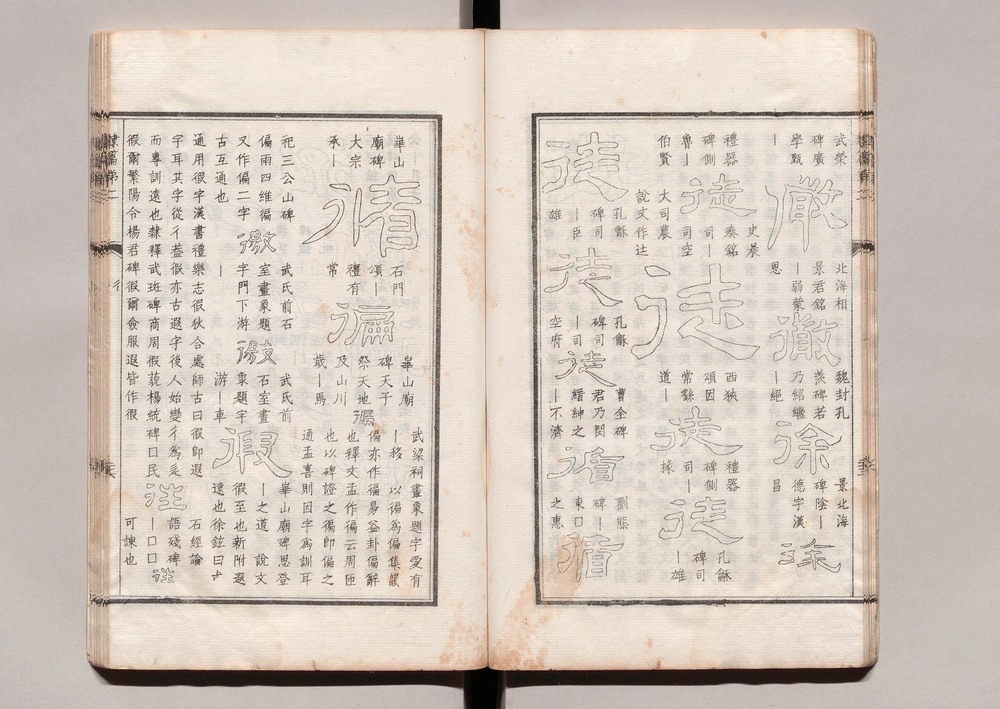 武榮
碑廣
學甄
｜
微
北海相
景君銘
｜弱蒙
恩
微
魏封孔
羨碑若
乃紹繼
｜絕
徐
景北海
碑陰｜
德字漢
昌
徐
禮器
碑側
魯｜
伯賢
徒
史晨
奏銘
司｜
司空
大司農
說文作辻
徒
西狹
頌因
常繇
道｜
徒
禮器
碑側
司｜
掾
徒
孔龢
碑司
｜雄
徒
孔龢
碑司
｜臣
雄
徒
孔龢
碑司
｜司
空府
徒
曹全碑
君乃閔
縉紳之
｜不濟
循
劉熊
碑｜
東口
之惠
循
華山
廟碑
大宗
承｜
循
石門
頌｜
禮有
常
徧
華山廟
碑天子
祭天地
及山川
歲｜焉
徧
武梁祠畫象題字愛有
｜移｜以徧為偏集韻
偏亦作徧易益卦偏辭
也釋文孟作徧云周匝
也以碑證之徧即偏之
通孟喜則因字為訓耳
祀三公山碑
偏雨四維徧
又作偏二字
古互通也
徼
武氏前石
室畫象題
字門下游
｜
徼
武氏前
石室畫
象題字
游｜車
徦
華山廟碑思登
｜之道 說文
徦至也新附遐
遠也徐鉉曰少
通用徦字漢書禮樂志徦狄合處師古曰徦即遐
字耳其字從彳葢徦亦古遐字後人始變彳為辵
而專訓遠也隸釋武班碑商周徦藐楊統碑口民
徦爾繁陽令楊君碑徦爾僉服遐皆作徦
往
石經論
語殘碑
｜口口
可諫也
往
隸篇第二